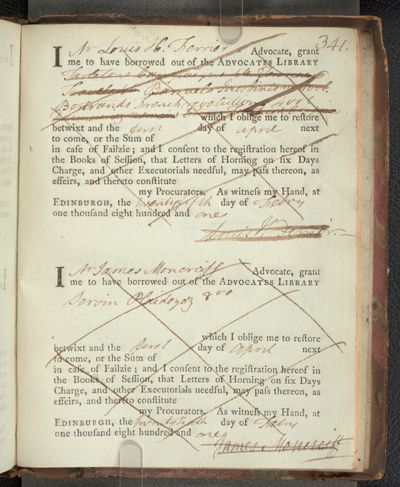 341.
I Mr Louis H. Ferrier Advocate, grant
me to have borrowed out of the ADVOCATES LIBRARY
Bertrands French revolution
which I oblige me to reſtore
betwixt and the first day of april next
to come, or the Sum of
in caſe of Failzie; and I conſent to the regiſtration hereof in
the Books of Seſſion, that Letters of Horning on ſix Days
Charge, and other Executorials needful, may paſs thereon, as
effeirs, and thereto conſtitute
my Procurators. As witneſs my Hand, at
EDINBURGH, the twentyfifth day of Febry
one thouſand eight hundred and one
Louis H. Ferrier
I Mr James Moncreiff Advocate, grant
me to have borrowed out of the ADVOCATES LIBRARY
8vo
which I oblige me to reſtore
betwixt and the first day of april next
to come, or the Sum of
in caſe of Failzie; and I conſent to the regiſtration hereof in
the Books of Seſſion, that Letters of Horning on ſix Days
Charge, and other Executorials needful, may paſs thereon, as
effeirs, and thereto conſtitute
my Procurators. As witneſs my Hand, at
EDINBURGH, the twentysixth day of Febry
one thouſand eight hundred and one
James Moncreiff